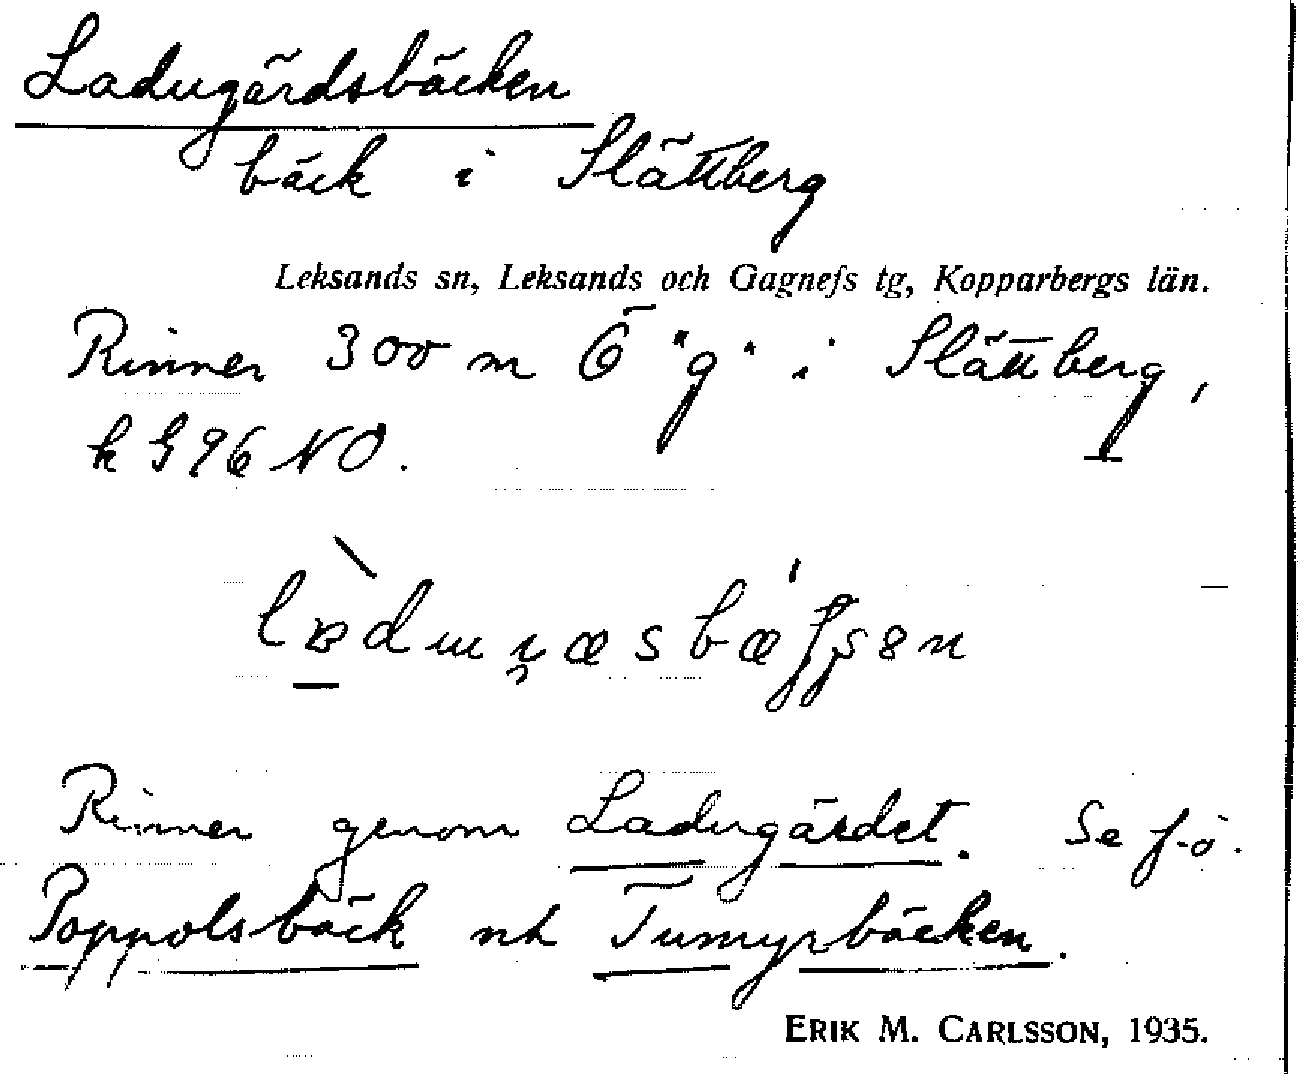 Ladugårdsbäcken
bäck i Slättberg
Leksands sn, Leksands och Gagnefs tg, Kopparbergs län.
Rinner 300 m Ö "g" i Slättberg,
k G 96 NO.
Rinner genom Ladugärdet. Se f.ö.
Poppolsbäck och Tumyrbäcken.
ERIK M. CARLSSON, 1935.